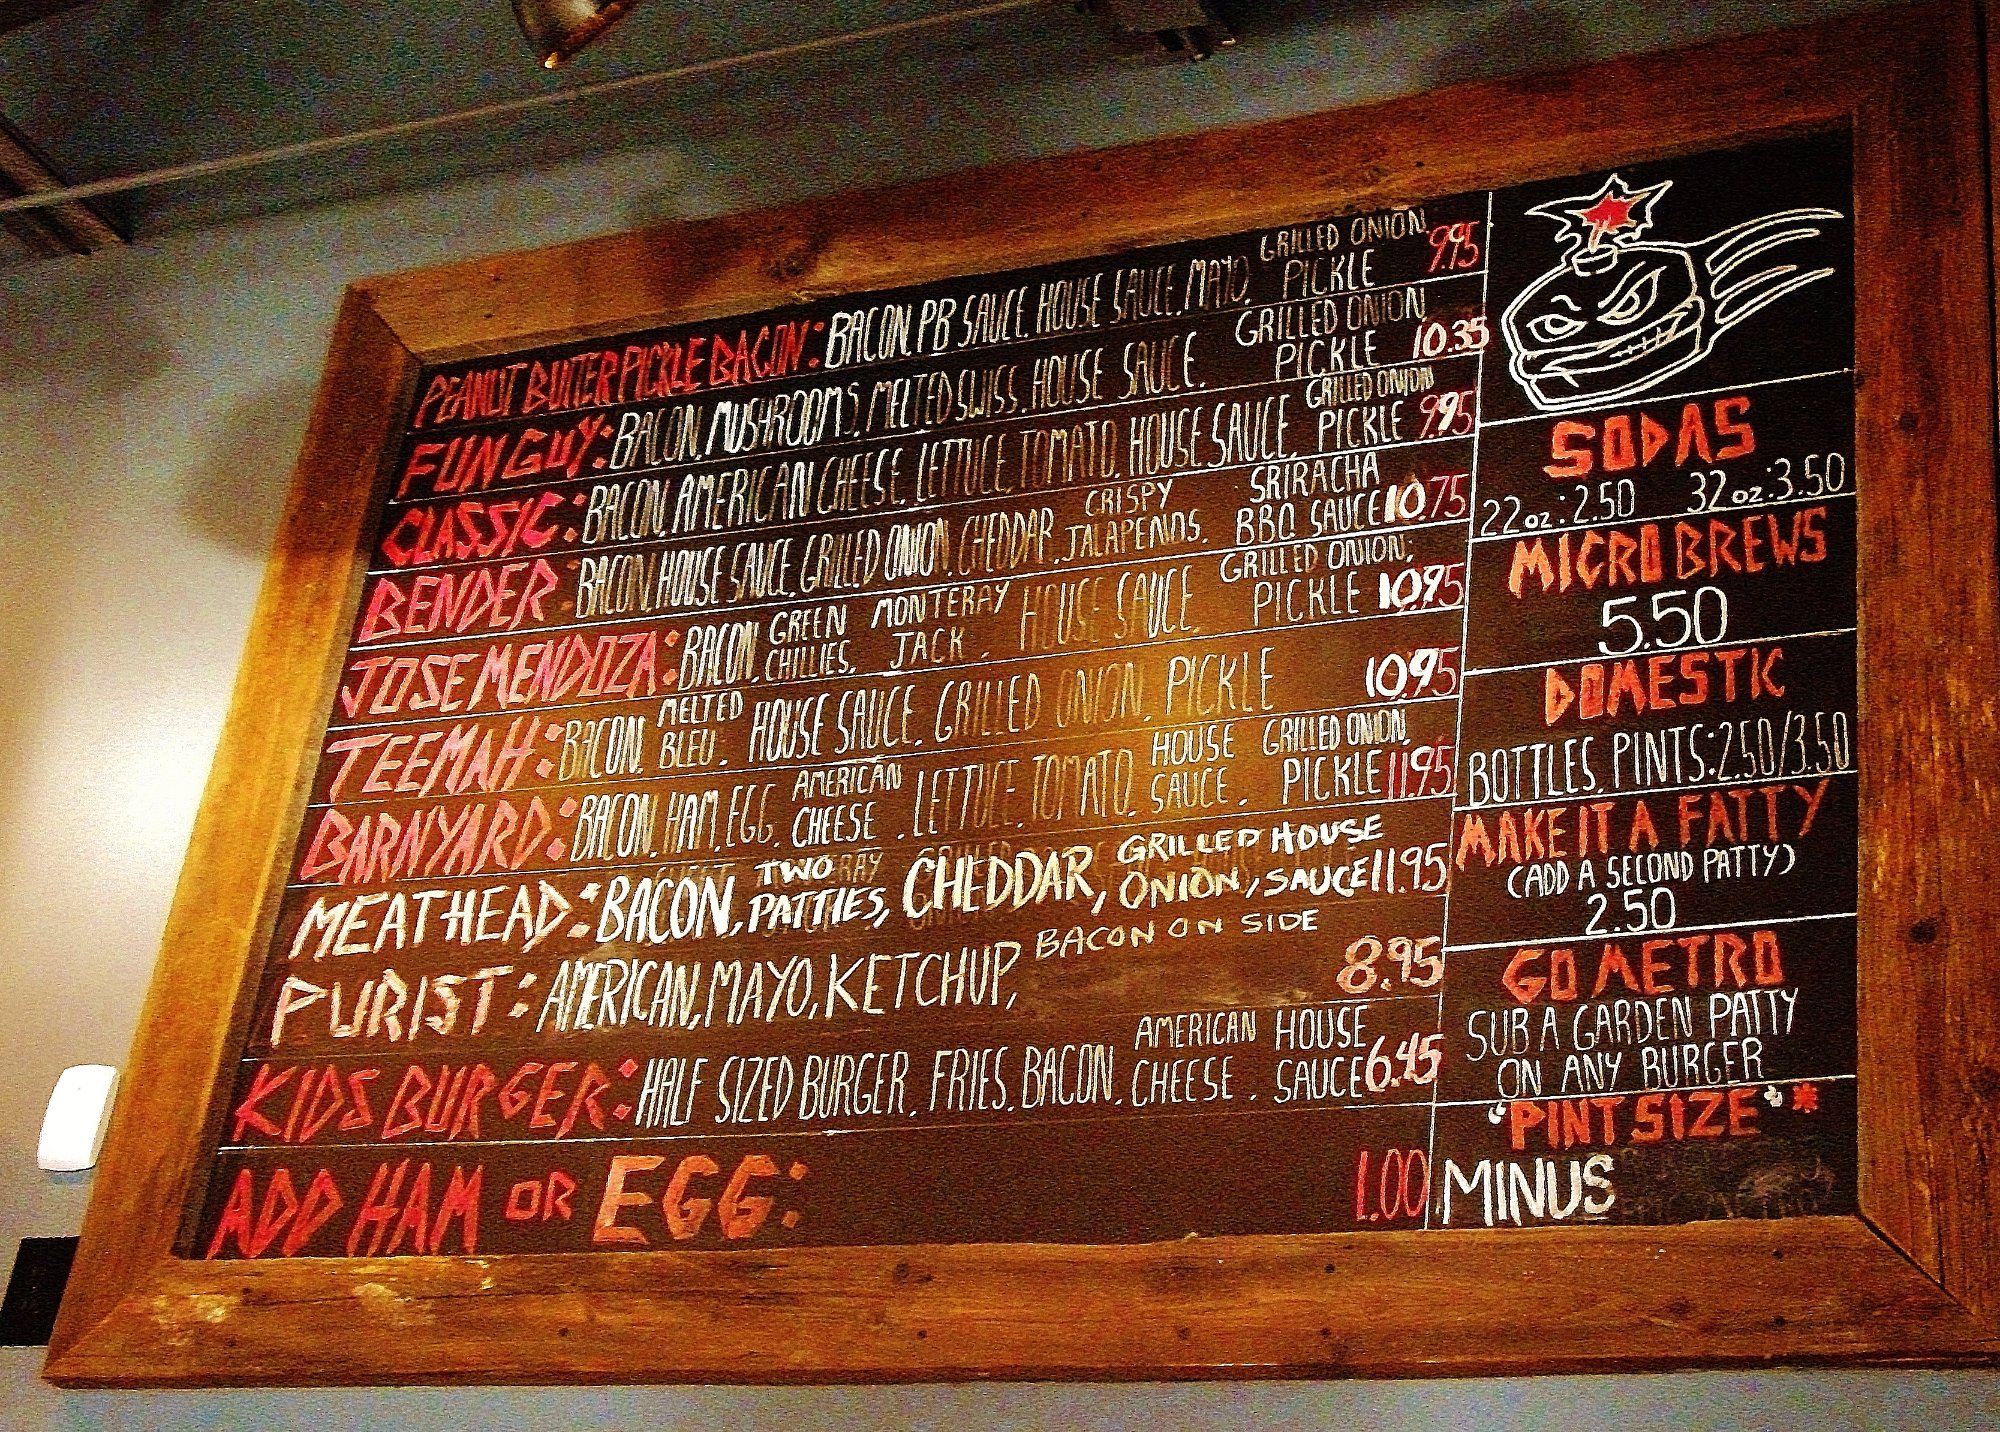 PEANUT BUTTER PICKLE BACON: BACON, PB SAUCE, HOUSE SAUCE, MAYO, GRILLED ONION, PICKLE 9.95
FUN GUY: BACON, MUSHROOMS, MELTED SWISS, HOUSE SAUCE, GRILLED ONION, PICKLE 10.35
CLASSIC: BACON, AMERICAN CHEESE, LETTUCE, TOMATO, HOUSE SAUCE, GRILLED ONION PICKLE 9.95
BENDER: BACON, HOUSE SAUCE, GRILLED ONION, CHEDDAR, CRISPY JALAPENOS, SRIRACHA BBQ SAUCE 10.75
JOSE MENDOZA: BACON, GREEN CHILLIES, MONTERAY JACK, HOUSE SAUCE, GRILLED ONION, PICKLE 10.95
TEEMAH: BACON, MELTED BLEU, HOUSE SAUCE, GRILLED ONION, PICKLE 10.95
BARNYARD: BACON, HAM, EGG, AMERICAN CHEESE, LETTUCE, TOMATO, HOUSE SAUCE, GRILLED ONION, PICKLE 11.95
MEATHEAD: BACON, TWO PATTIES, CHEDDAR, GRILLED ONION, HOUSE SAUCE 11.95
PURIST: AMERICAN, MAYO, KETCHUP, BACON ON SIDE 8.95
KIDS BURGER: HALF SIZED BURGER, FRIES, BACON, AMERICAN CHEESE, HOUSE SAUCE 6.45
ADD HAM OR EGG: 1.00
SODAS
22oz:2.50 32oz:3.50
MICRO BREWS
5.50
DOMESTIC
BOTTLES, PINTS:2.50/3.50
MAKE IT A FATTY
(ADD A SECOND PATTY)
2.50
GO METRO
SUB A GARDEN PATTY
ON ANY BURGER
"PINT SIZE" *
MINUS